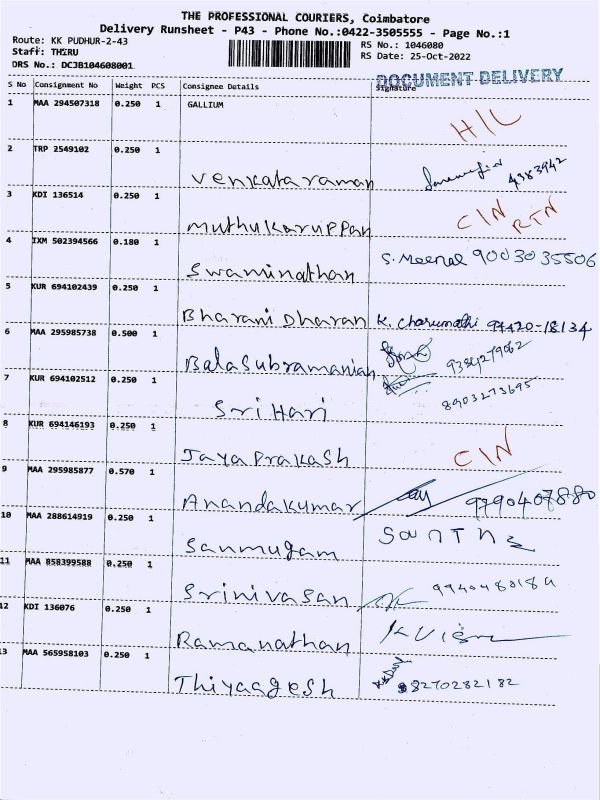 THE PROFESSIONAL COURIERS, Coimbatore
Delivery Runsheet - P43 - Phone No.:0422-3505555 - Page No.:1
Route: KK PUDHUR-2-43
RS No.: 1046080
Staff: THIRU
RS Date: 25-Oct-2022
DRS No.: DCJB104608001
DOCUMENT DELIVERY
S No Consignment No Weight PCS Consignee Details Signature
1 MAA 294507318 0.250 1 GALLIUM
H/L
2 TRP 2549102 0.250 1
Venkataraman 4383942
3 KDI 136514 0.250 1
Muthukaruppan CIN RTN
4 IXM 502394566 0.180 1
Swaminathan S. Meenal 9003035506
5 KUR 694102439 0.250 1
Bharani Dharan K. Charumathi 97420-18134
6 MAA 295985738 0.500 1
Balasubramanian
7 KUR 694102512 0.250 1
Sri Hari 8903273695
8 KUR 694146193 0.250 1
Jaya Prakash CIN
9 MAA 295985877 0.570 1
Anandakumar 9790407880
10 MAA 288614919 0.250 1
Sanmugam
11 MAA 858399588 0.250 1
Srinivasan
12 KDI 136076 0.250 1
Ramanathan
13 MAA 565958103 0.250 1
Thiyaagesh 8270282182